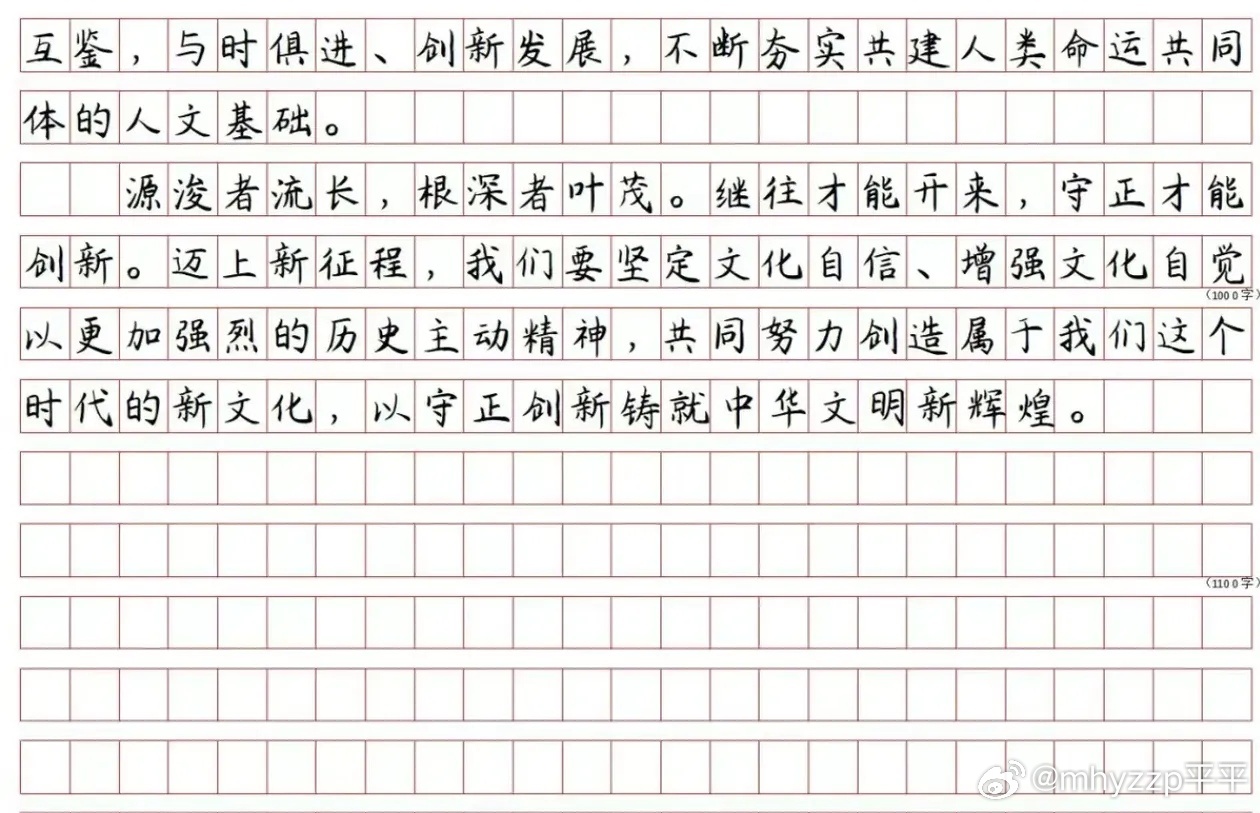 互鉴，与时俱进、创新发展，不断夯实共建人类命运共同
体的人文基础。
源浚者流长，根深者叶茂。继往才能开来，守正才能
创新。迈上新征程，我们要坚定文化自信、增强文化自觉
（1000字）
以更加强烈的历史主动精神，共同努力创造属于我们这个
时代的新文化，以守正创新铸就中华文明新辉煌。
（1100字）
@mhyzzp平平